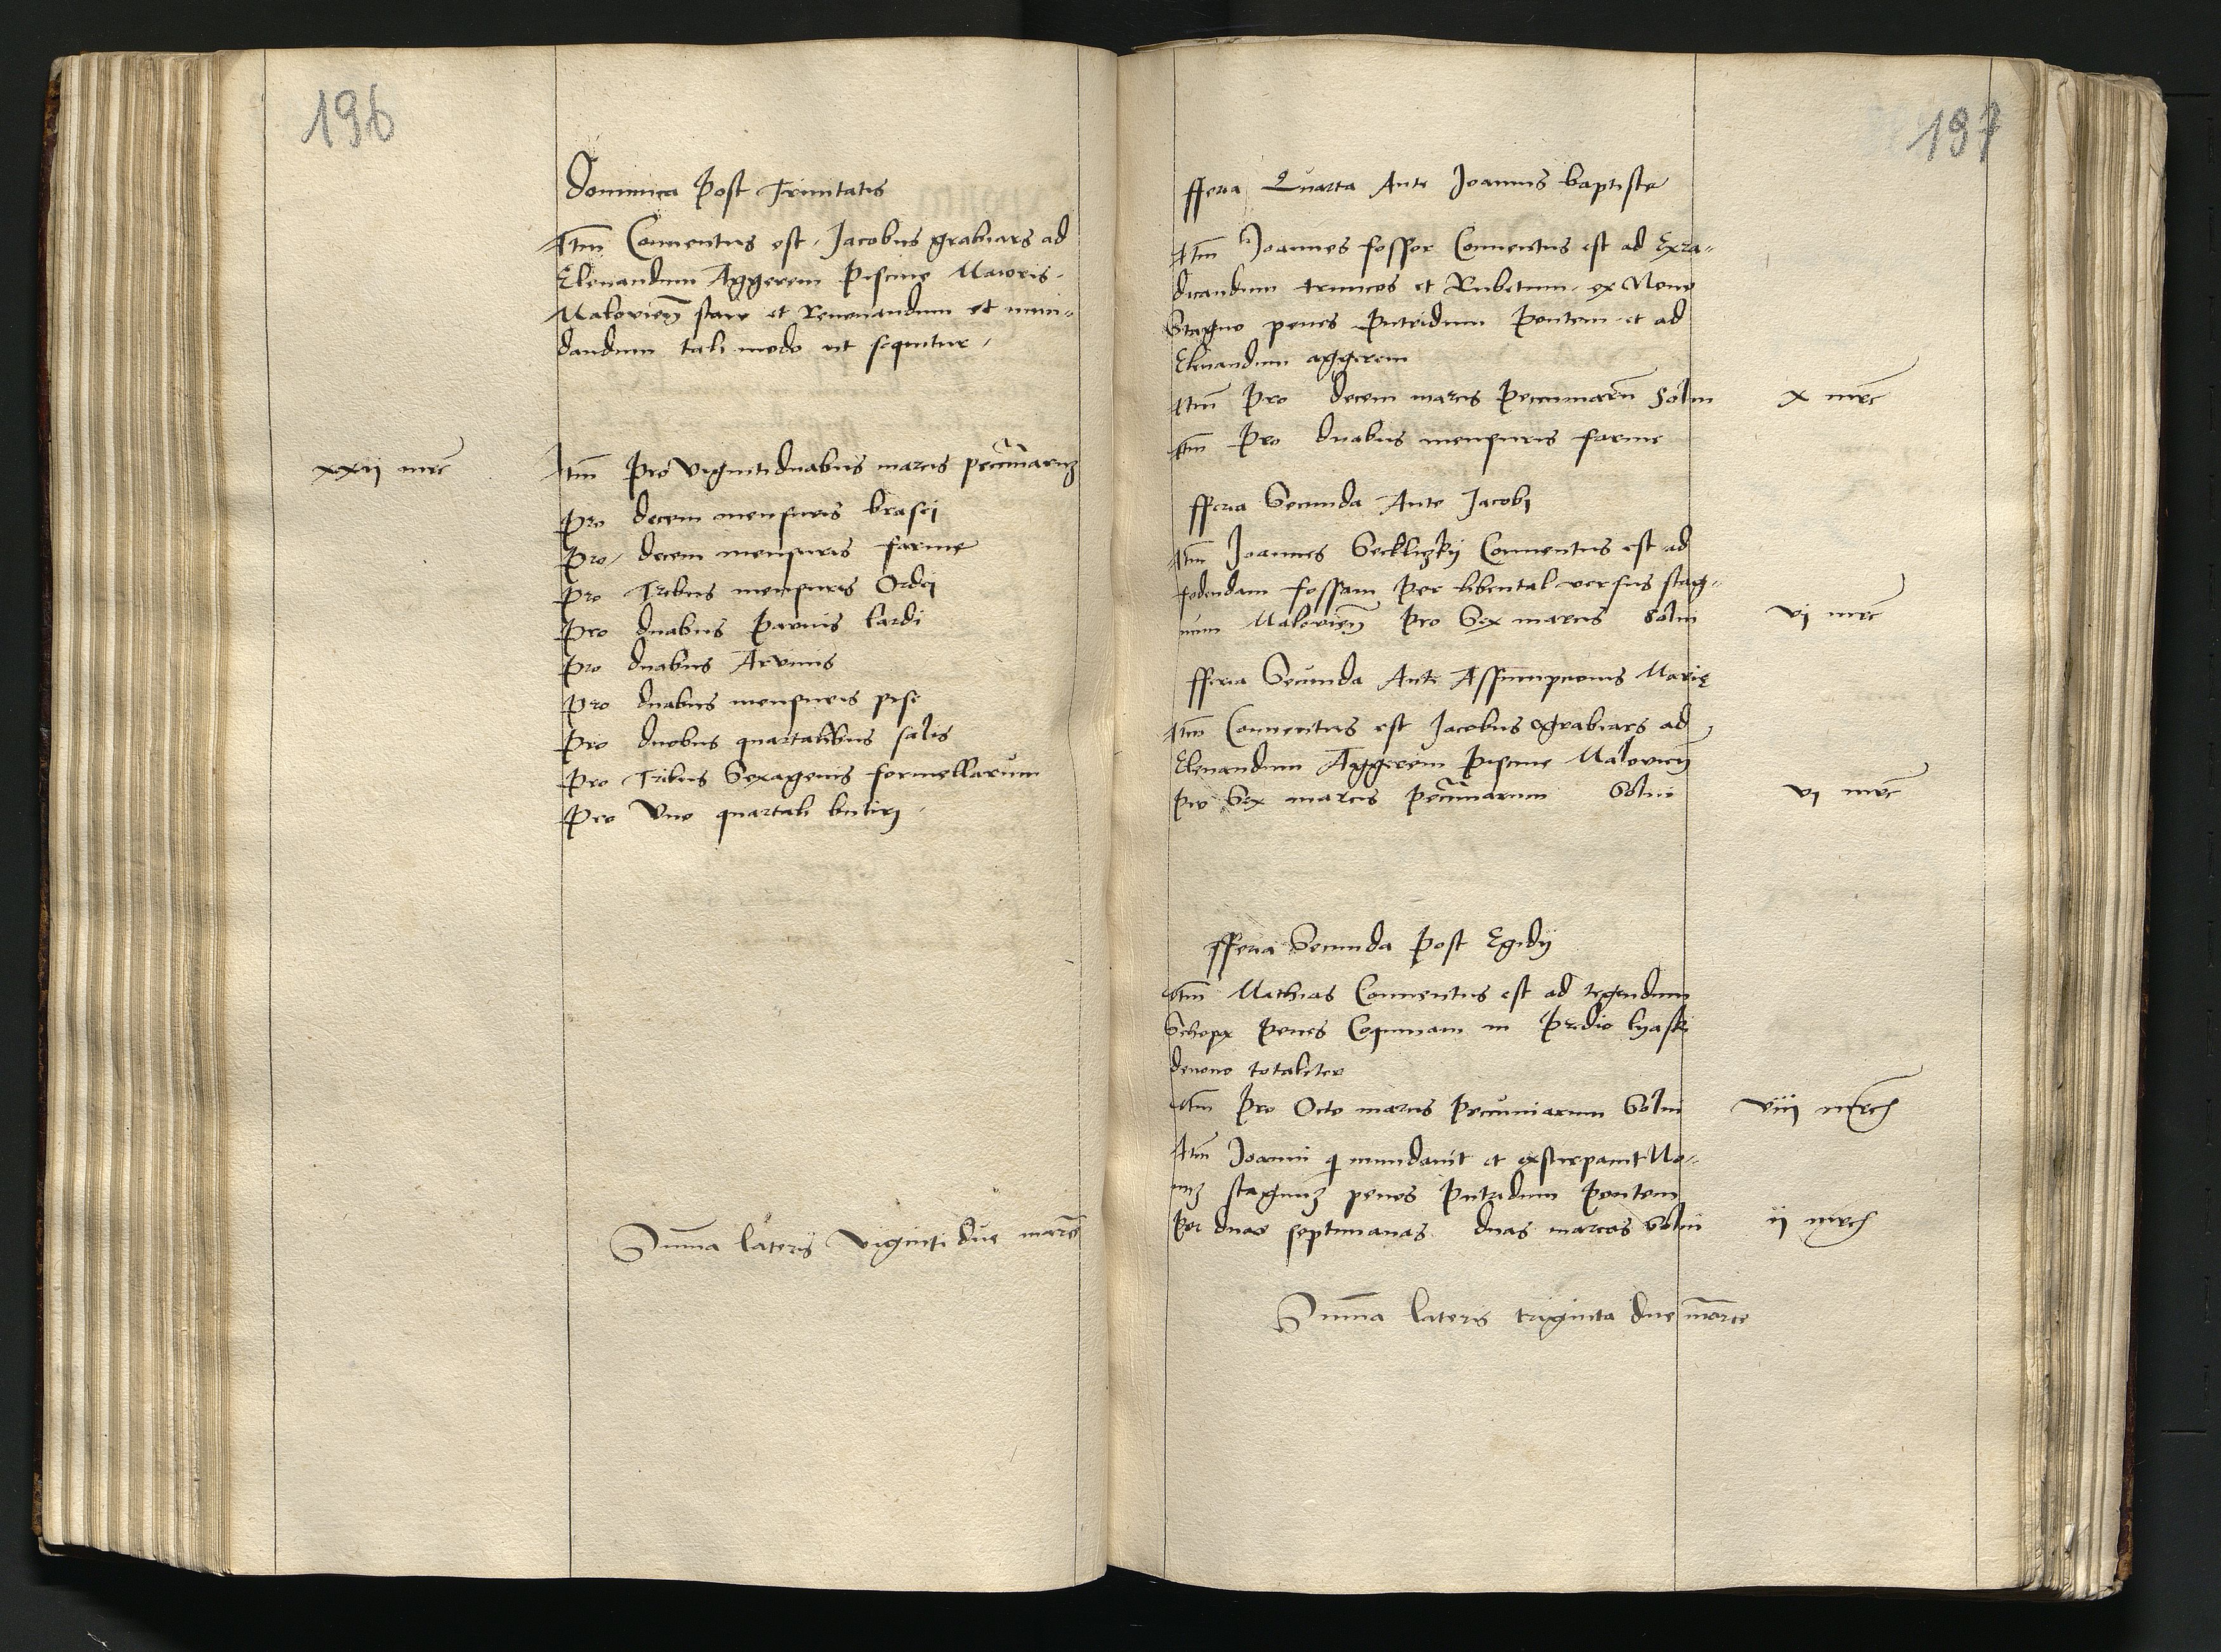 196
Dominica Post Trinitatis
Itm Conuentus est Jacobus grabiars ad
Eleuandum Aggerem Piscine Maioris
Malouien̄ stare et Renouandum et mun-
dandum tali modo ut sequitur
xxij mrc
Itm Pro vigintiduabus marcis pecūniaruz
Pro decem mensuris brasei
Pro decem mensuris farine
Pro Tribus mensuris Ordei
Pro duabus Paruis lardi
Pro duabus Aruinis
Pro duabus mensuris pise
Pro duobus quartalibus salis
Pro Tribus Sexagenis formellarum
Pro Vno quartali butiri
Sum̄a lateris viginti due marce
197
fferia Quarta Ante Joannis baptiste
Itm Joannes fossor Conuentus est ad Exra-
dicandum truncos et Rubetum ex Nouo
Stagno penes Putridum Pontem et ad
Eleuandum aggerem
Itm Pro decem marcis Pecuniarū Solui
x mrc
Itm Pro duabus mensuris farine
fferia Secunda Ante Jacobi
Itm Joannes Secklizkij Conuentus est ad
fodendam fossam Per libental versus stag-
num Malouien̄ Pro Sex marcis Solui
vj mrc
fferia Secunda Ante Assumpcionis Marię
Itm Conuentus est Jacobus grabiars ad
Eleuandum Aggerem Piscine Malouien̄
Pro Sex marcis Pecūniarum Solui
vj mrc
fferia Secunda Post Egidij
Itm Mathias Conuentus est ad tegendum
Schopx Penes Coquinam in Predio lyaski
denouo totaliter
Itm Pro Octo marcis Pecuniarum Solui
viij mrc
Itm Joanni q mundauit et exstirpauit No-
uuz stagnuz penes Putridum Pontem
Per duas septimanas duas marcas Solui
ij mrc
Sum̄a lateris triginta due marce